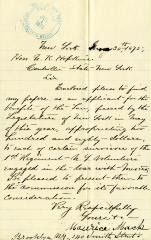 New York, 30th 1892.
Hon. N. K. Hopkins
Controller State New York
Sir
Enclosed please to find
my papers as an applicant for the
benefits of the Law, passed by the
Legislature of New York in May
of this year, appropriating two
hundred and eighty dollars
to each of certain survivors of the
1st Regiment N. Y. Volunteers
engaged in the war with Mexico
Sir pleased to present them to
the commission for its favorable
consideration.
Very Respectfully
Yours &c
Maurice Mack
Brooklyn N.Y. Smith Street